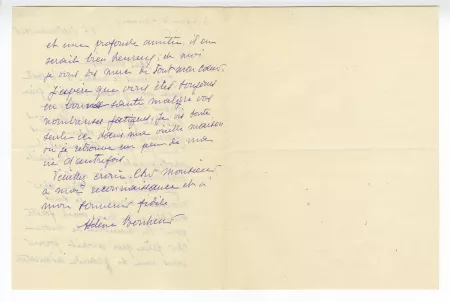 et une profonde amitié, il en
serait bien heureux, et moi
je vous dis merci de tout mon cœur.
J'espère que vous êtes toujours
en bonne santé malgré vos
nombreuses fatigues, je vis toute
seule ici dans ma vieille maison
où je retrouve un peu de ma
vie d'autrefois.
Veuillez croire, Cher Monsieur
à ma reconnaissance et à
mon souvenir fidèle
Hélène Bonheur